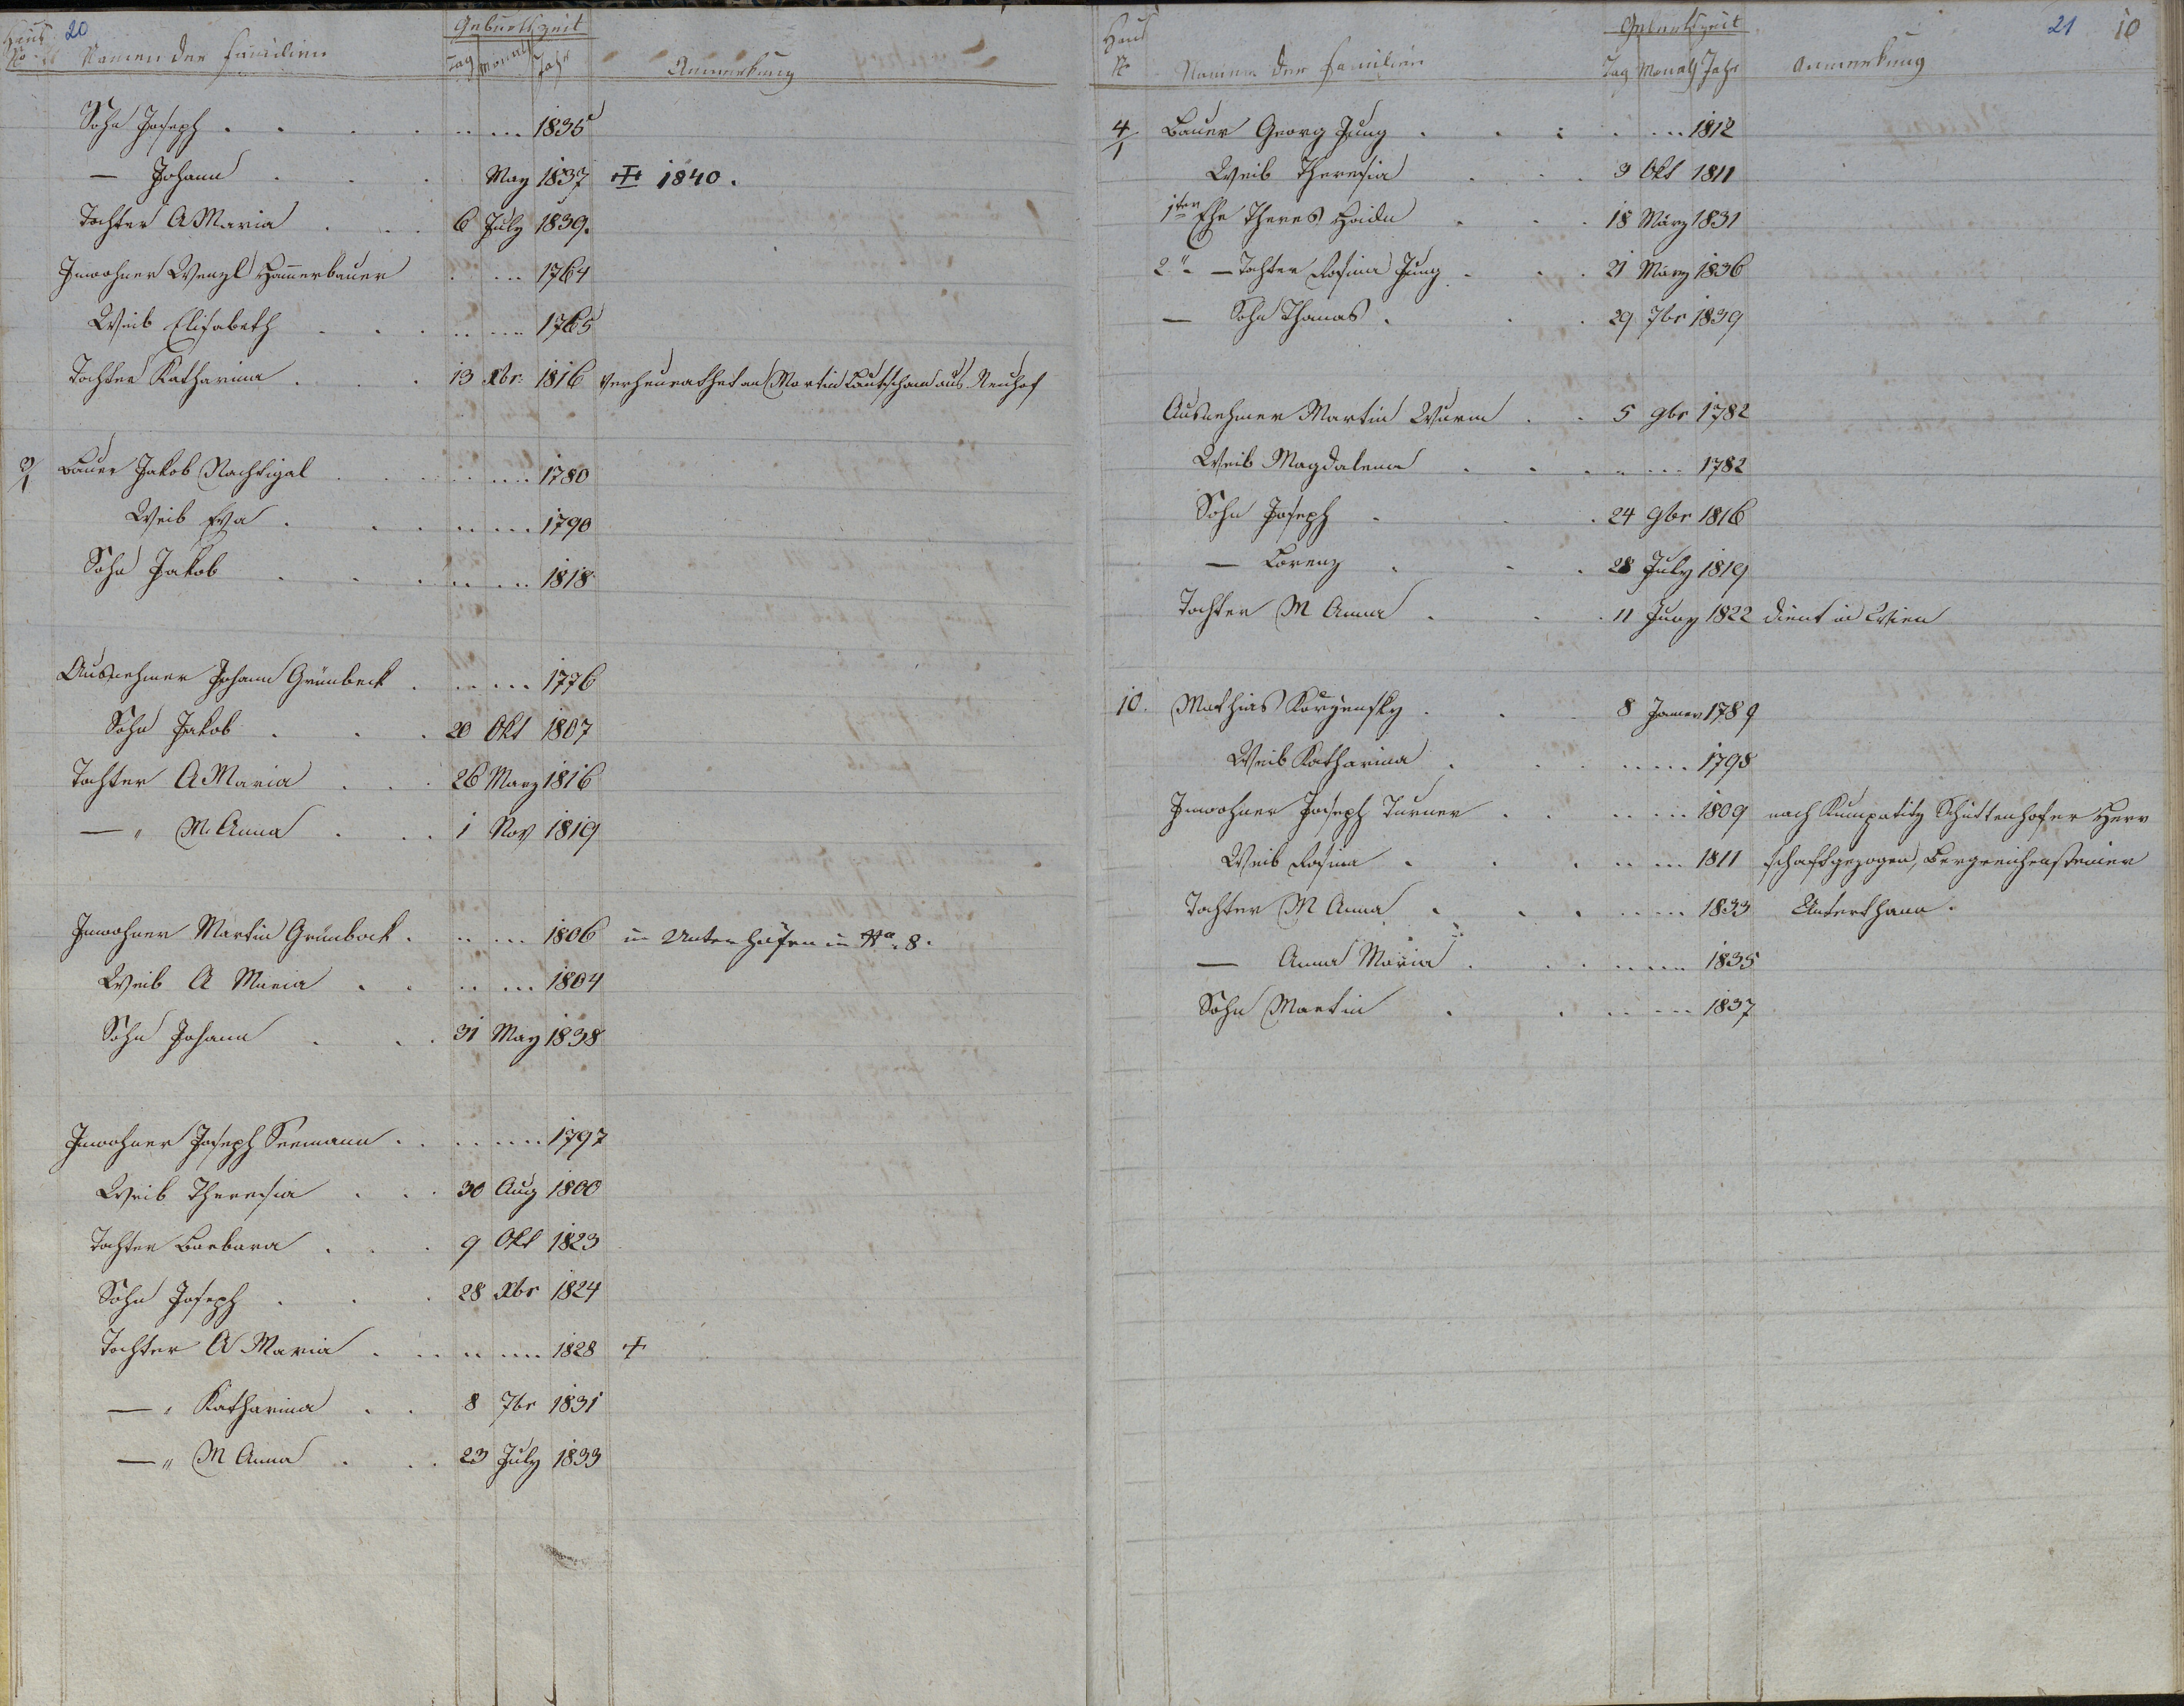 20
Haus No Namen der Familien Geburtszeit
Tag Monath Jahr Anmerkung
Sohn Joseph . . . . ..... 1835
— Johann . . . May 1837 ++ 1840.
Tochter A Maria . . . 6 July 1839.
Inwohner Wenzl Hammerbauer . ... 1764
Weib Elisabeth . . . ..... 1765
Tochter Katharina . . . 13 Xbr. 1816 verheurathet an Martin Lautscham aus Neuhof
3/1 Bauer Jakob Nachtigal . . ..... 1780
Weib Eva . . . ..... 1790
Sohn Jakob . . . ..... 1818
Ausnehmer Johann Grünbeck . ..... 1776
Sohn Jakob . . . 20 Okt 1807
Tochter A Maria . . . 26 Marz 1816
—„ M. Anna . . . 1 Nov 1819
Inwohner Martin Grünbock . ..... 1806 in Unterhäfen in No. 8.
Weib A Maria . . ..... 1804
Sohn Johann . . . 31 May 1838
Inwohner Joseph Seemann . . ..... 1797
Weib Theresia . . . 30 Aug 1800
Tochter Barbara . . . 9 Okt 1823
Sohn Joseph . . . 28 Xbr 1824
Tochter A Maria . . . ..... 1828 +
—„ Katharina . . 8 7br 1831
—„ M Anna . . . 23 July 1833
21 10
Haus No Namen der Familien Geburtszeit
Tag Monath Jahr Anmerkung
4/1 Bauer Georg Jung . . : .... 1812
Weib Theresia . . . 3 Okt 1811
1ter Ehe Theres Haidn . . . 18 März 1831
2" — Tochter Rosina Jung . . . 21 März 1836
— Sohn Thomas . . . 29 7br 1839
Ausnehmer Martin Wurm . . 5 9br 1782
Weib Magdalena . . . .... 1782
Sohn Joseph . . . 24 9br 1816
— Lorenz . . . 28 July 1819
Tochter M Anna . . . 11 Juny 1822 dient in Wien
10. Mathias Korzensky . . . 8 Janer 1789
Weib Katharina . . . ..... 1798
Inwohner Joseph Turner . . ..... 1809 nach Kumpatitz Schüttenhofer Herr
Weib Rosina . . . ..... 1811 schaft gezogen, Bergreichensteiner
Tochter M Anna . . . ..... 1833 Unterthan.
— Anna Maria . . ..... 1835
Sohn Martin . . ..... 1837